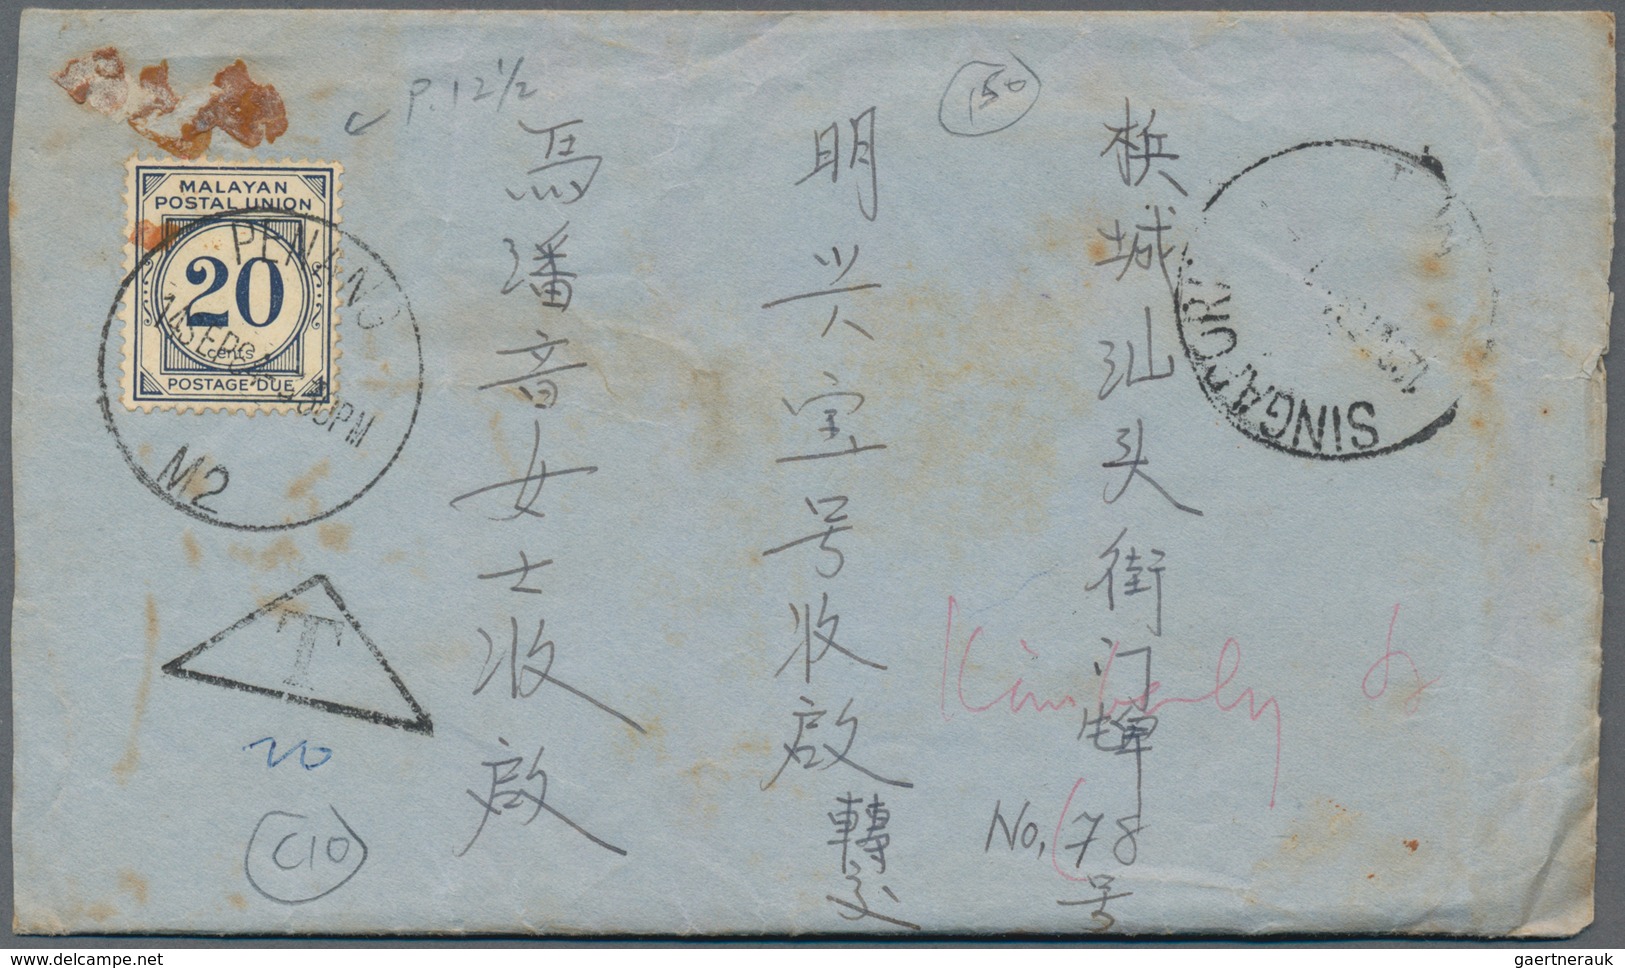 p. 12 1/2
150
MALAYAN
POSTAL UNION
20
cents
POSTAGE DUE
PENANG
M2
SINGAPORE
T
20
C10
槟城汕头街门牌
No, 78
号
明兴宝号收啟
轉交
馬潘音女士收啟
Kimberly
gaertnerauk